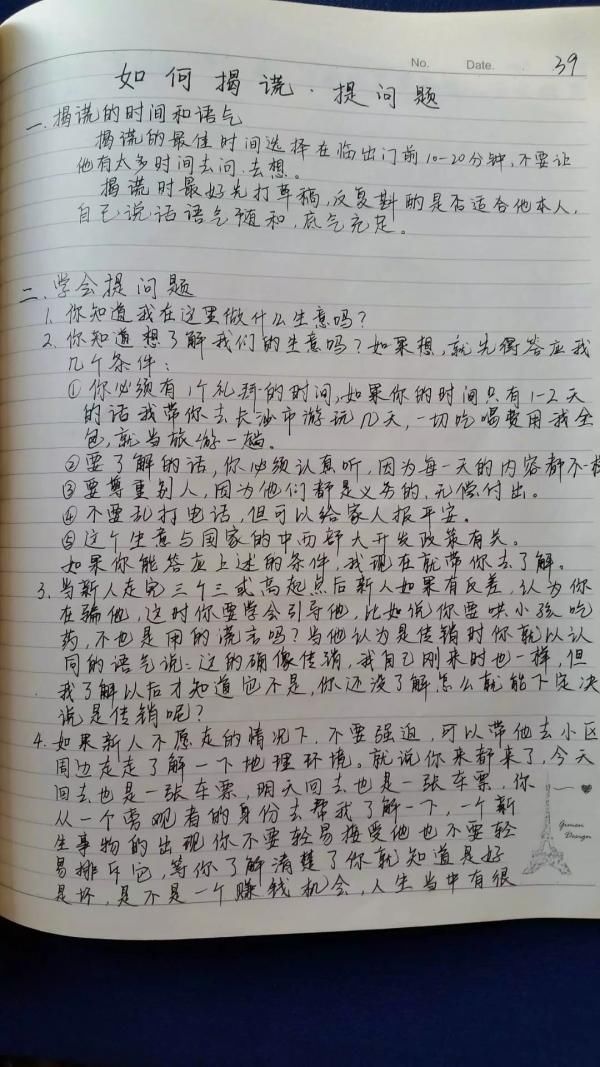 No.
Date.
39
如何揭谎.提问题
一.揭谎的时间和语气
揭谎的最佳时间选择在临出门前10-20分钟,不要让
他有太多时间去问.去想。
揭谎时最好先打草稿,反复斟酌是否适合他本人,
自己说话语气平和,底气充足。
二、学会提问题
1.你知道我在这里做什么生意吗?
2.你知道想了解我们的生意吗?如果想,就先得答应我
几个条件:
①你必须有1个礼拜的时间,如果你的时间只有1-2天
的话我带你去长沙市游玩几天,一切吃喝费用我全
包,就当旅游一趟。
②要了解的话,你必须认真听,因为每一天的内容都不一样
③要尊重别人,因为他们都是义务的,无偿付出。
④不要乱打电话,但可以给家人报平安。
⑤这个生意与国家的中西部大开发政策有关。
如果你能答应上述的条件,我现在就带你去了解。
3.当新人走完三个三或高起点后新人如果有反差,认为你
在骗他,这时你要学会引导他,比如说你要哄小孩吃
药,不也是用的谎言吗?当他认为是传销时你就以认
同的语气说:这的确像传销,我自己刚来时也一样,但
我了解以后才知道它不是,你还没了解怎么就能下定决
说是传销呢?
4.如果新人不愿走的情况下.不要强迫,可以带他去小区
周边走走了解一下地理环境。就说你来都来了,今天
回去也是一张车票,明天回去也是一张车票,你
从一个旁观者的身份去帮我了解一下,一个新
生事物的出现你不要轻易接受他也不要轻
易排斥它,等你了解清楚了你就知道是好
是坏,是不是一个赚钱机会,人生当中有很
Gimen
Design